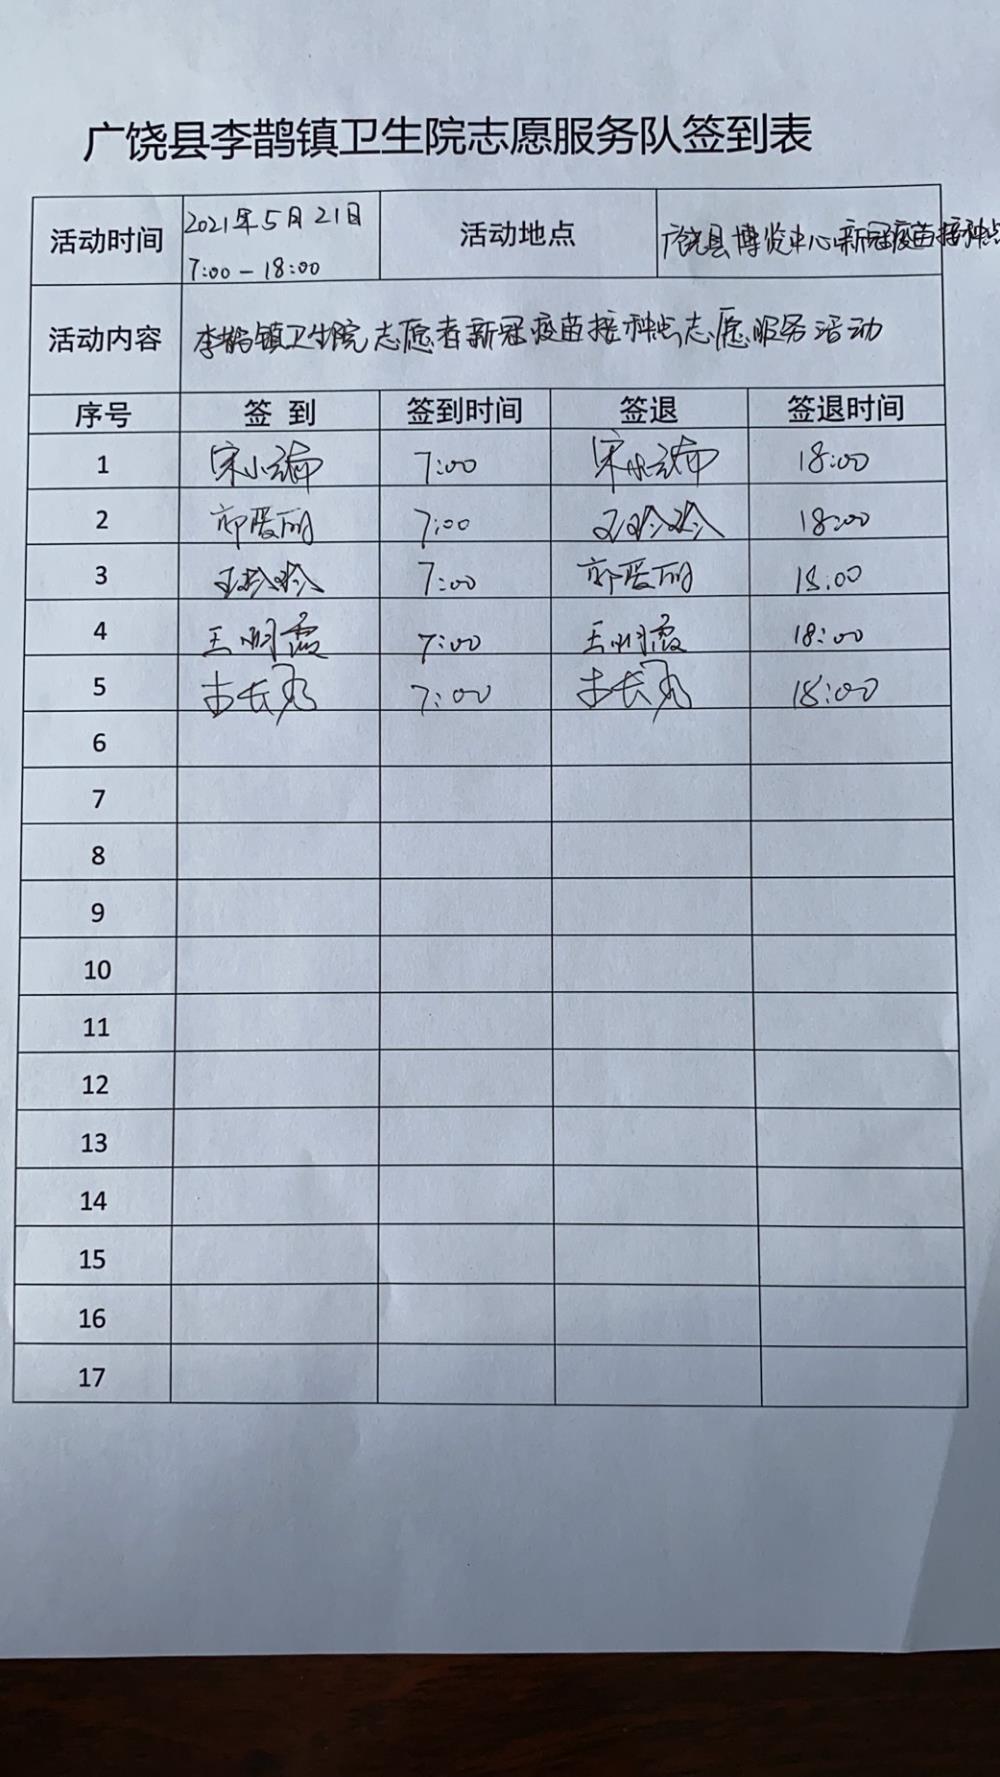 广饶县李鹊镇卫生院志愿服务队签到表
活动时间 2021年5月21日 7:00-18:00 活动地点 广饶县博览中心新冠疫苗接种点
活动内容 李鹊镇卫生院志愿者新冠疫苗接种点志愿服务活动
序号 签 到 签到时间 签退 签退时间
1 宋小瑞 7:00 宋小瑞 18:00
2 7:00 王玲玲 18:00
3 王玲玲 7:00 18:00
4 王明霞 7:00 王明霞 18:00
5 7:00 18:00
6
7
8
9
10
11
12
13
14
15
16
17